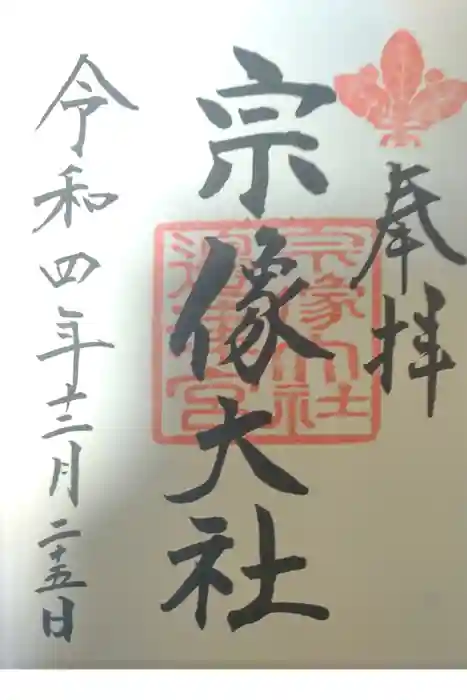 奉拝
宗像大社
宗像大社
邉津宮
令和四年十二月二十五日